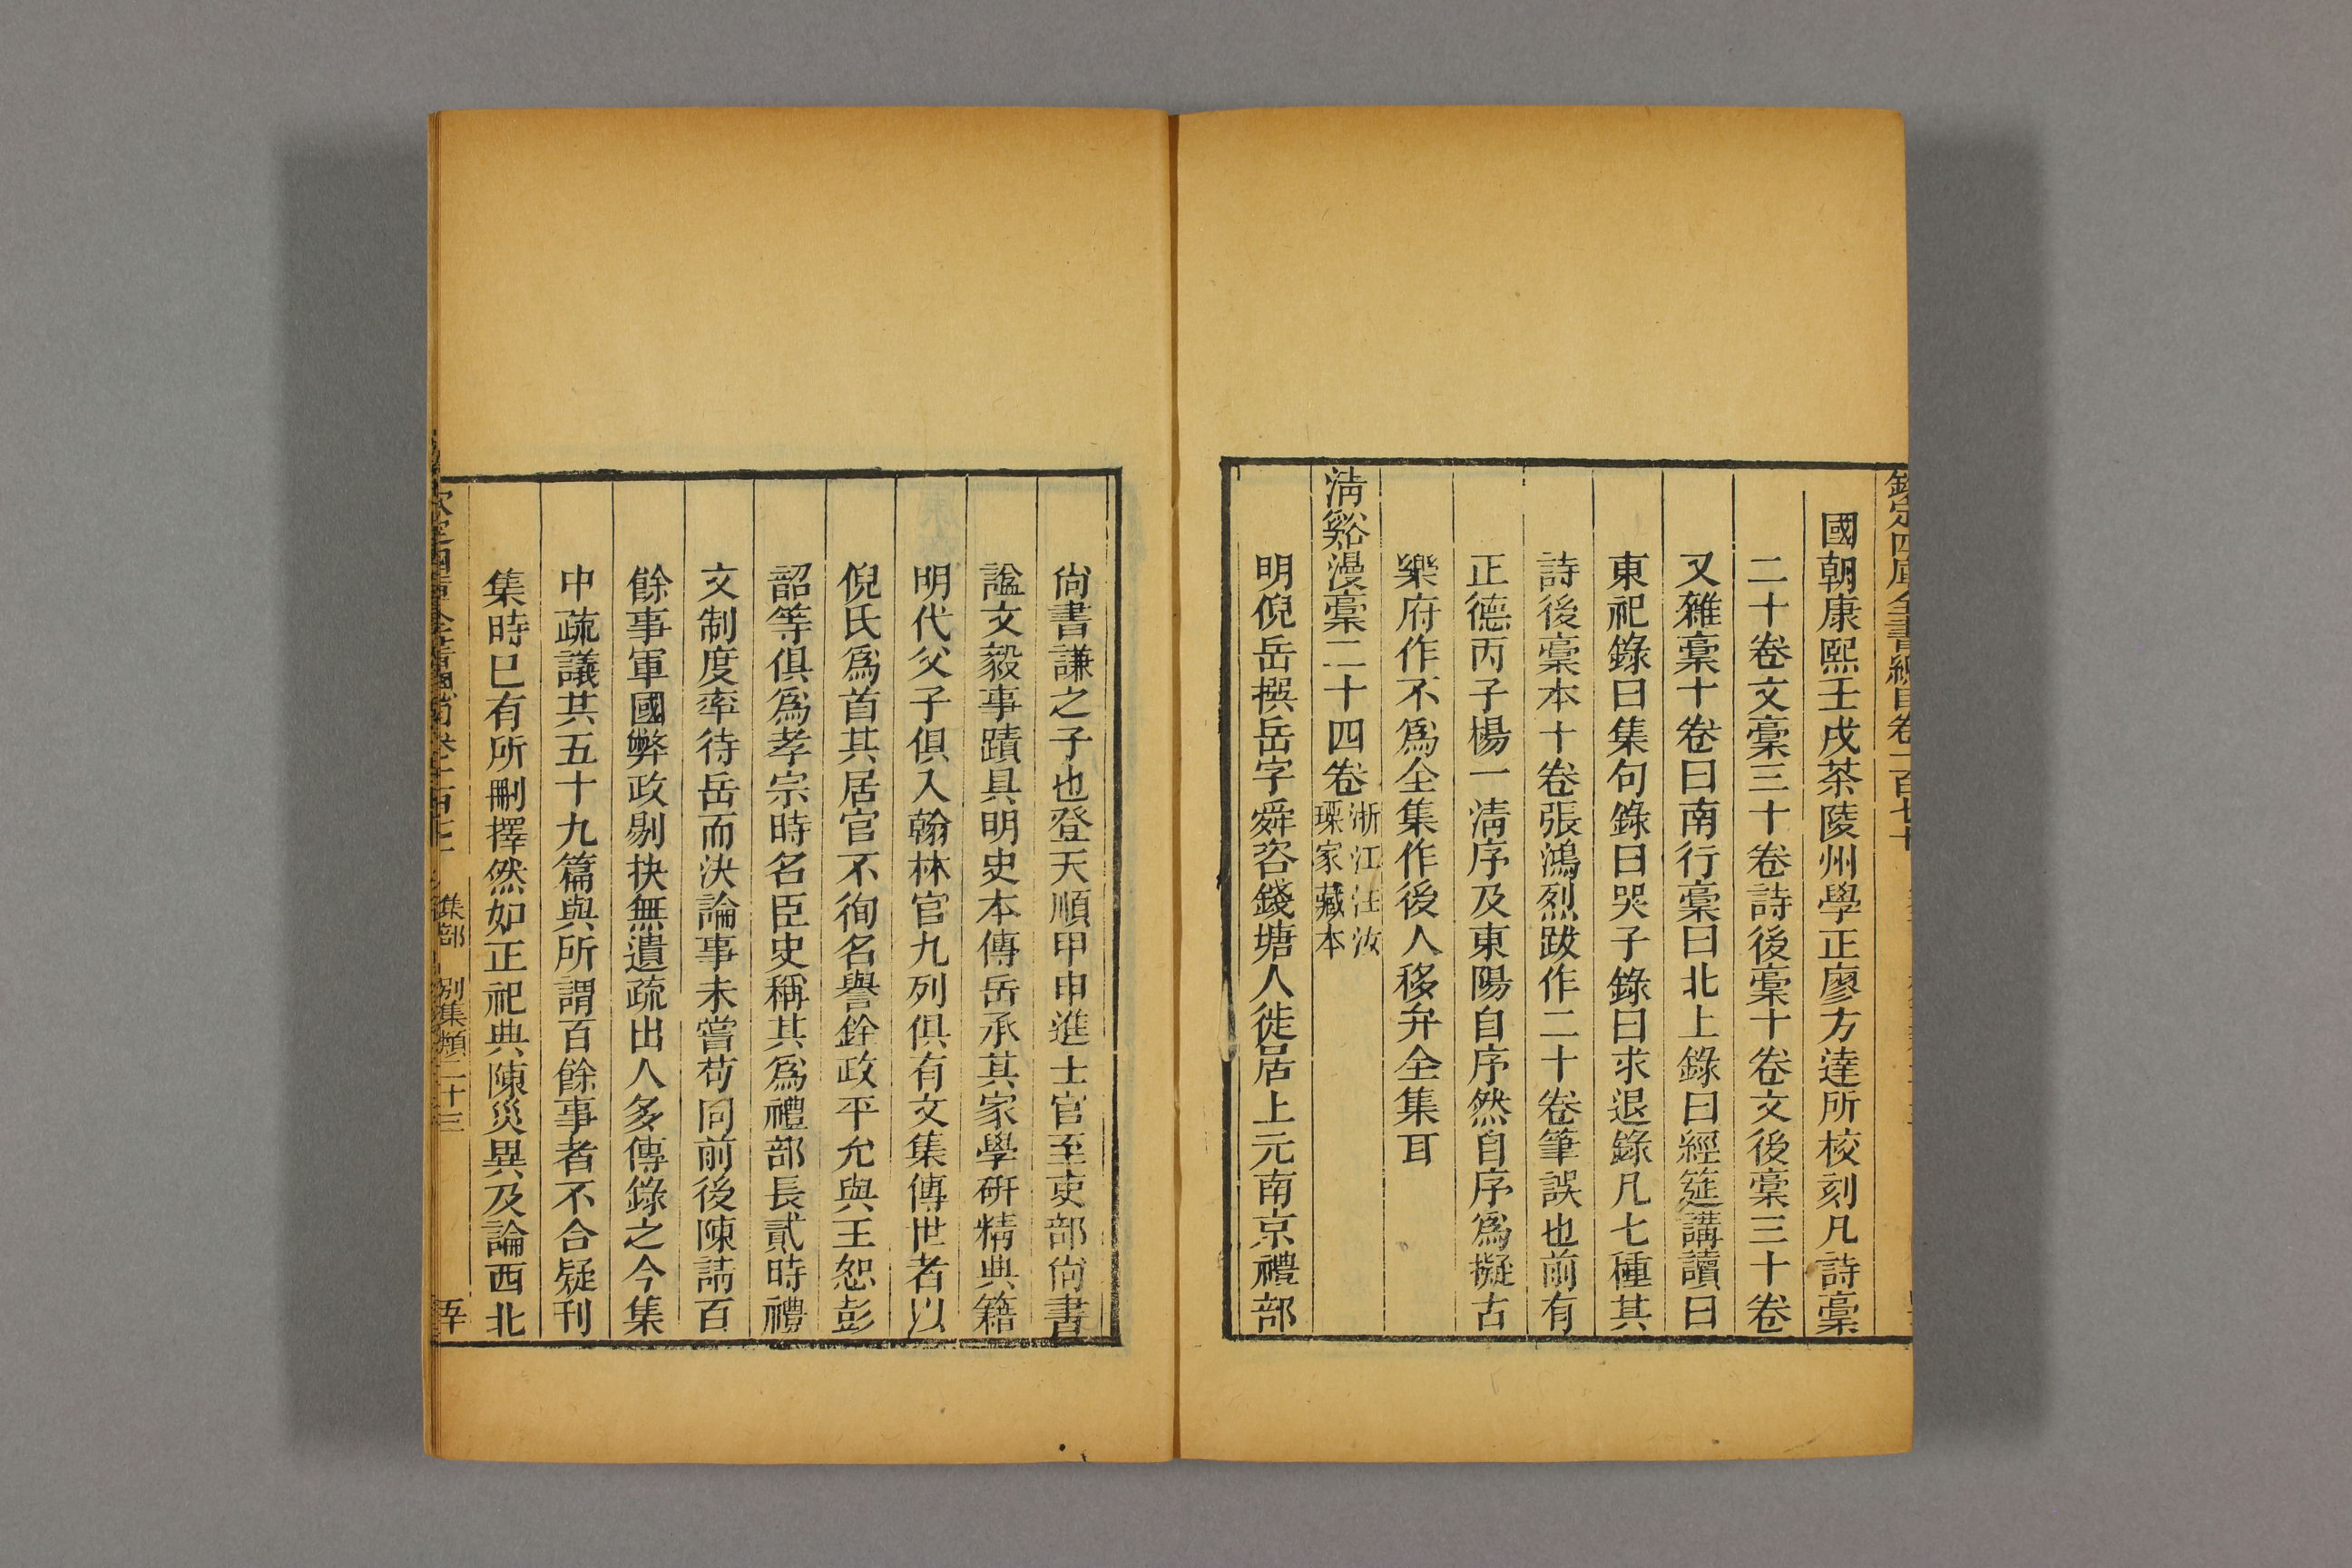 欽定四庫全書總目卷一百七十
國朝康熙壬戌茶陵州學正廖方達所校刻凡詩稾
二十卷文稾三十卷詩後稾十卷文後稾三十卷
又雜稾十卷曰南行稾曰北上錄曰經筵講讀曰
東祀錄曰集句錄曰哭子錄曰求退錄凡七種其
詩後稾本十卷張鴻烈跋作二十卷筆誤也前有
正德丙子楊一淸序及東陽自序然自序爲擬古
樂府作不爲全集作後人移弁全集耳
淸谿漫稾二十四卷浙江汪汝瑮家藏本
明倪岳撰岳字舜咨錢塘人徙居上元南京禮部
尙書謙之子也登天順甲申進士官至吏部尙書
諡文毅事蹟具明史本傳岳承其家學硏精典籍
明代父子俱入翰林官九列俱有文集傳世者以
倪氏爲首其居官不徇名譽銓政平允與王恕彭
韶等俱爲孝宗時名臣史稱其爲禮部長貳時禮
文制度率待岳而決論事未嘗苟同前後陳請百
餘事軍國弊政剔抉無遺疏出人多傳錄之今集
中疏議其五十九篇與所謂百餘事者不合疑刊
集時已有所刪擇然如正祀典陳災異及論西北
集部 別集類二十三